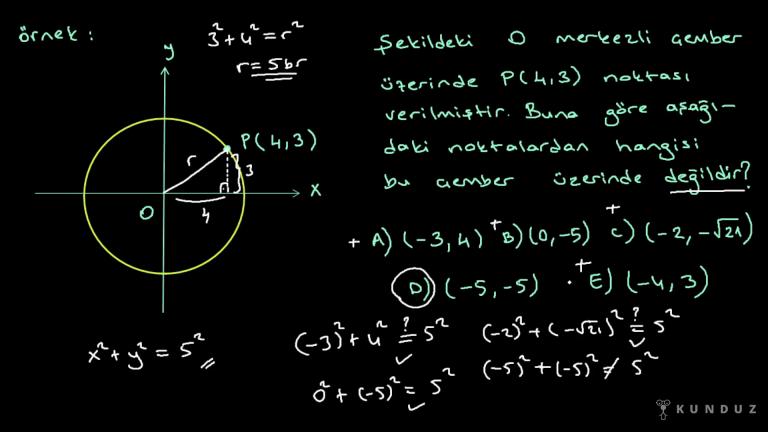 örnek :
3² + 4² = r²
r = 5br
y
P(4,3)
r
3
4
O
x
Şekildeki O merkezli çember
üzerinde P(4,3) noktası
verilmiştir. Buna göre aşağı-
daki noktalardan hangisi
bu çember üzerinde değildir?
+ A) (-3, 4) + B) (0, -5) + C) (-2, -√21)
D) (-5, -5) · + E) (-4, 3)
x² + y² = 5²
(-3)² + 4² ≟ 5² ✓
(-2)² + (-√21)² ≟ 5² ✓
0² + (-5)² = 5² ✓
(-5)² + (-5)² ≠ 5²
KUNDUZ